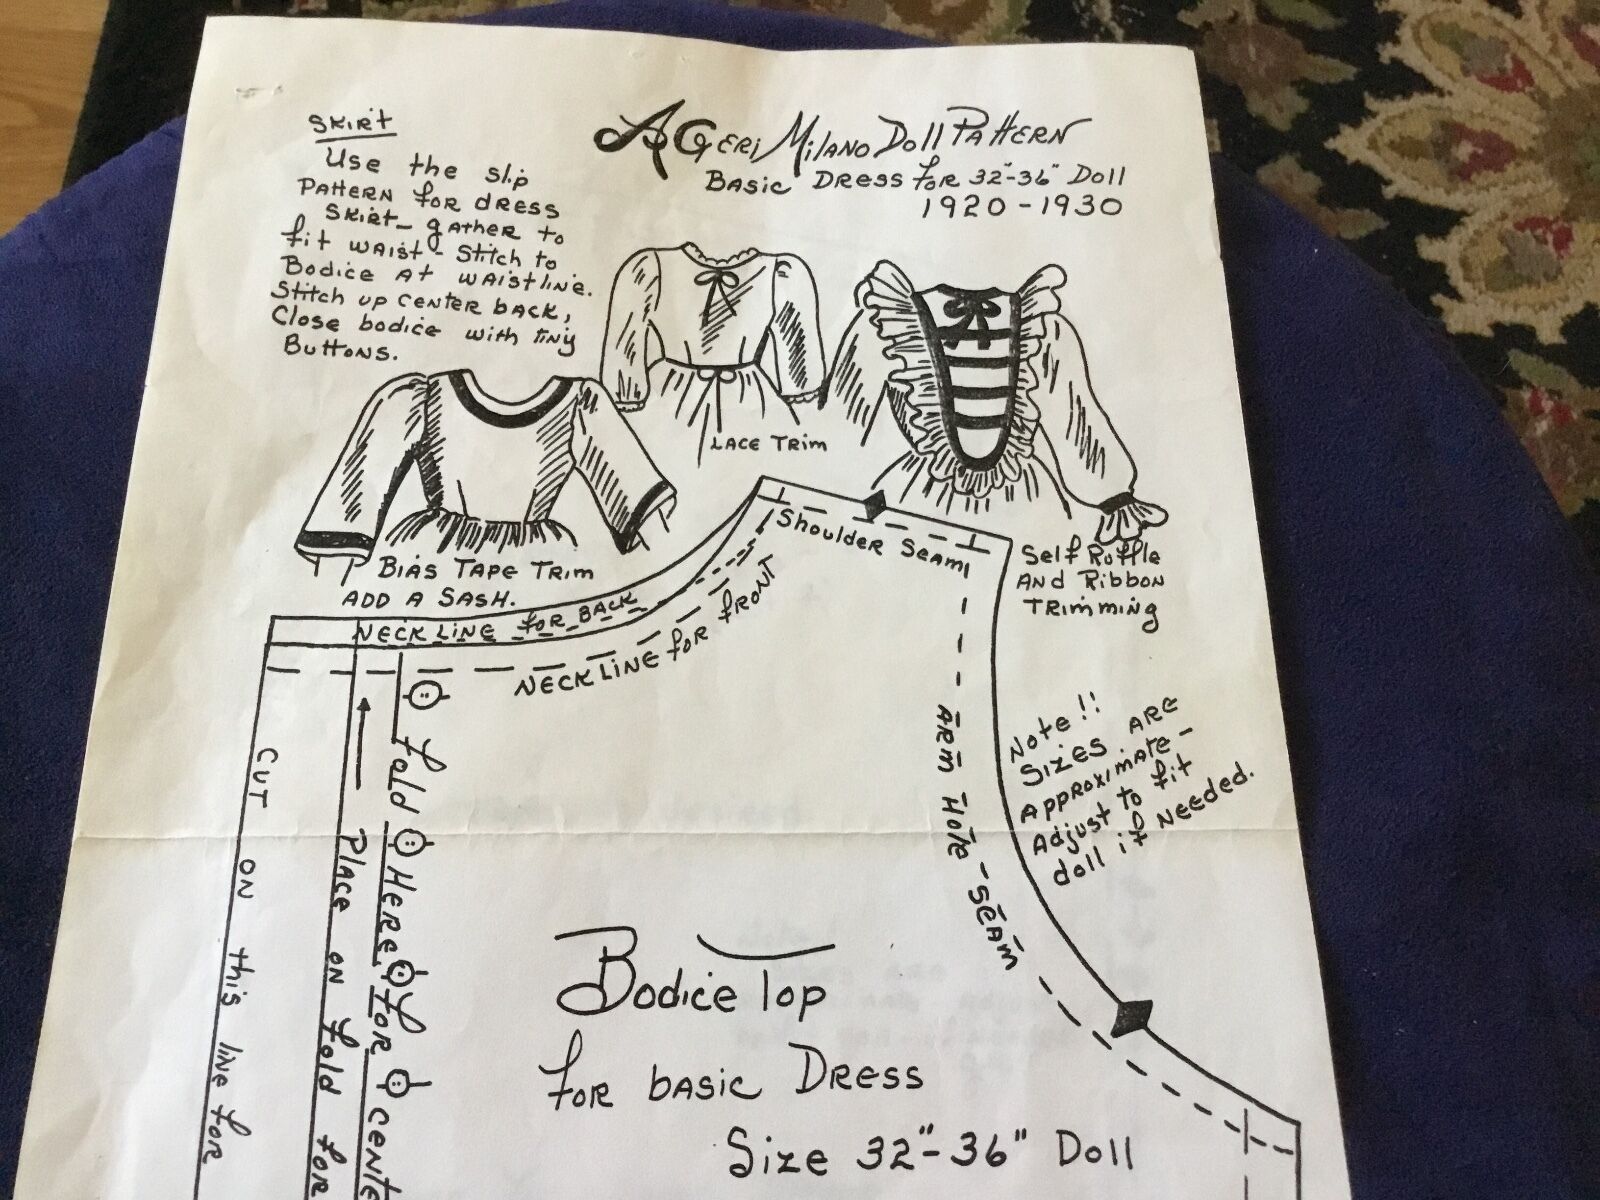 SKIRT
Use the slip
PATTERN for dress
SKIRT - gather to
fit waist - Stitch to
Bodice at waistline.
Stitch up center back,
Close bodice with tiny
Buttons.
A GERI MILANO DOLL PATTERN
BASIC DRESS FOR 32"-36" Doll
1920-1930
LACE TRIM
BIAS TAPE TRIM
ADD A SASH.
Self Ruffle
AND Ribbon
TRIMMING
Shoulder Seam
NECK LINE for BACK
NECK LINE for FRONT
ARM HOLE - SEAM
Note!!
SIZES ARE
APPROXIMATE -
Adjust to fit
doll if Needed.
CUT ON this line for
Place on fold for
fold HERE for CENTE
Bodice Top
for basic Dress
Size 32"-36" Doll